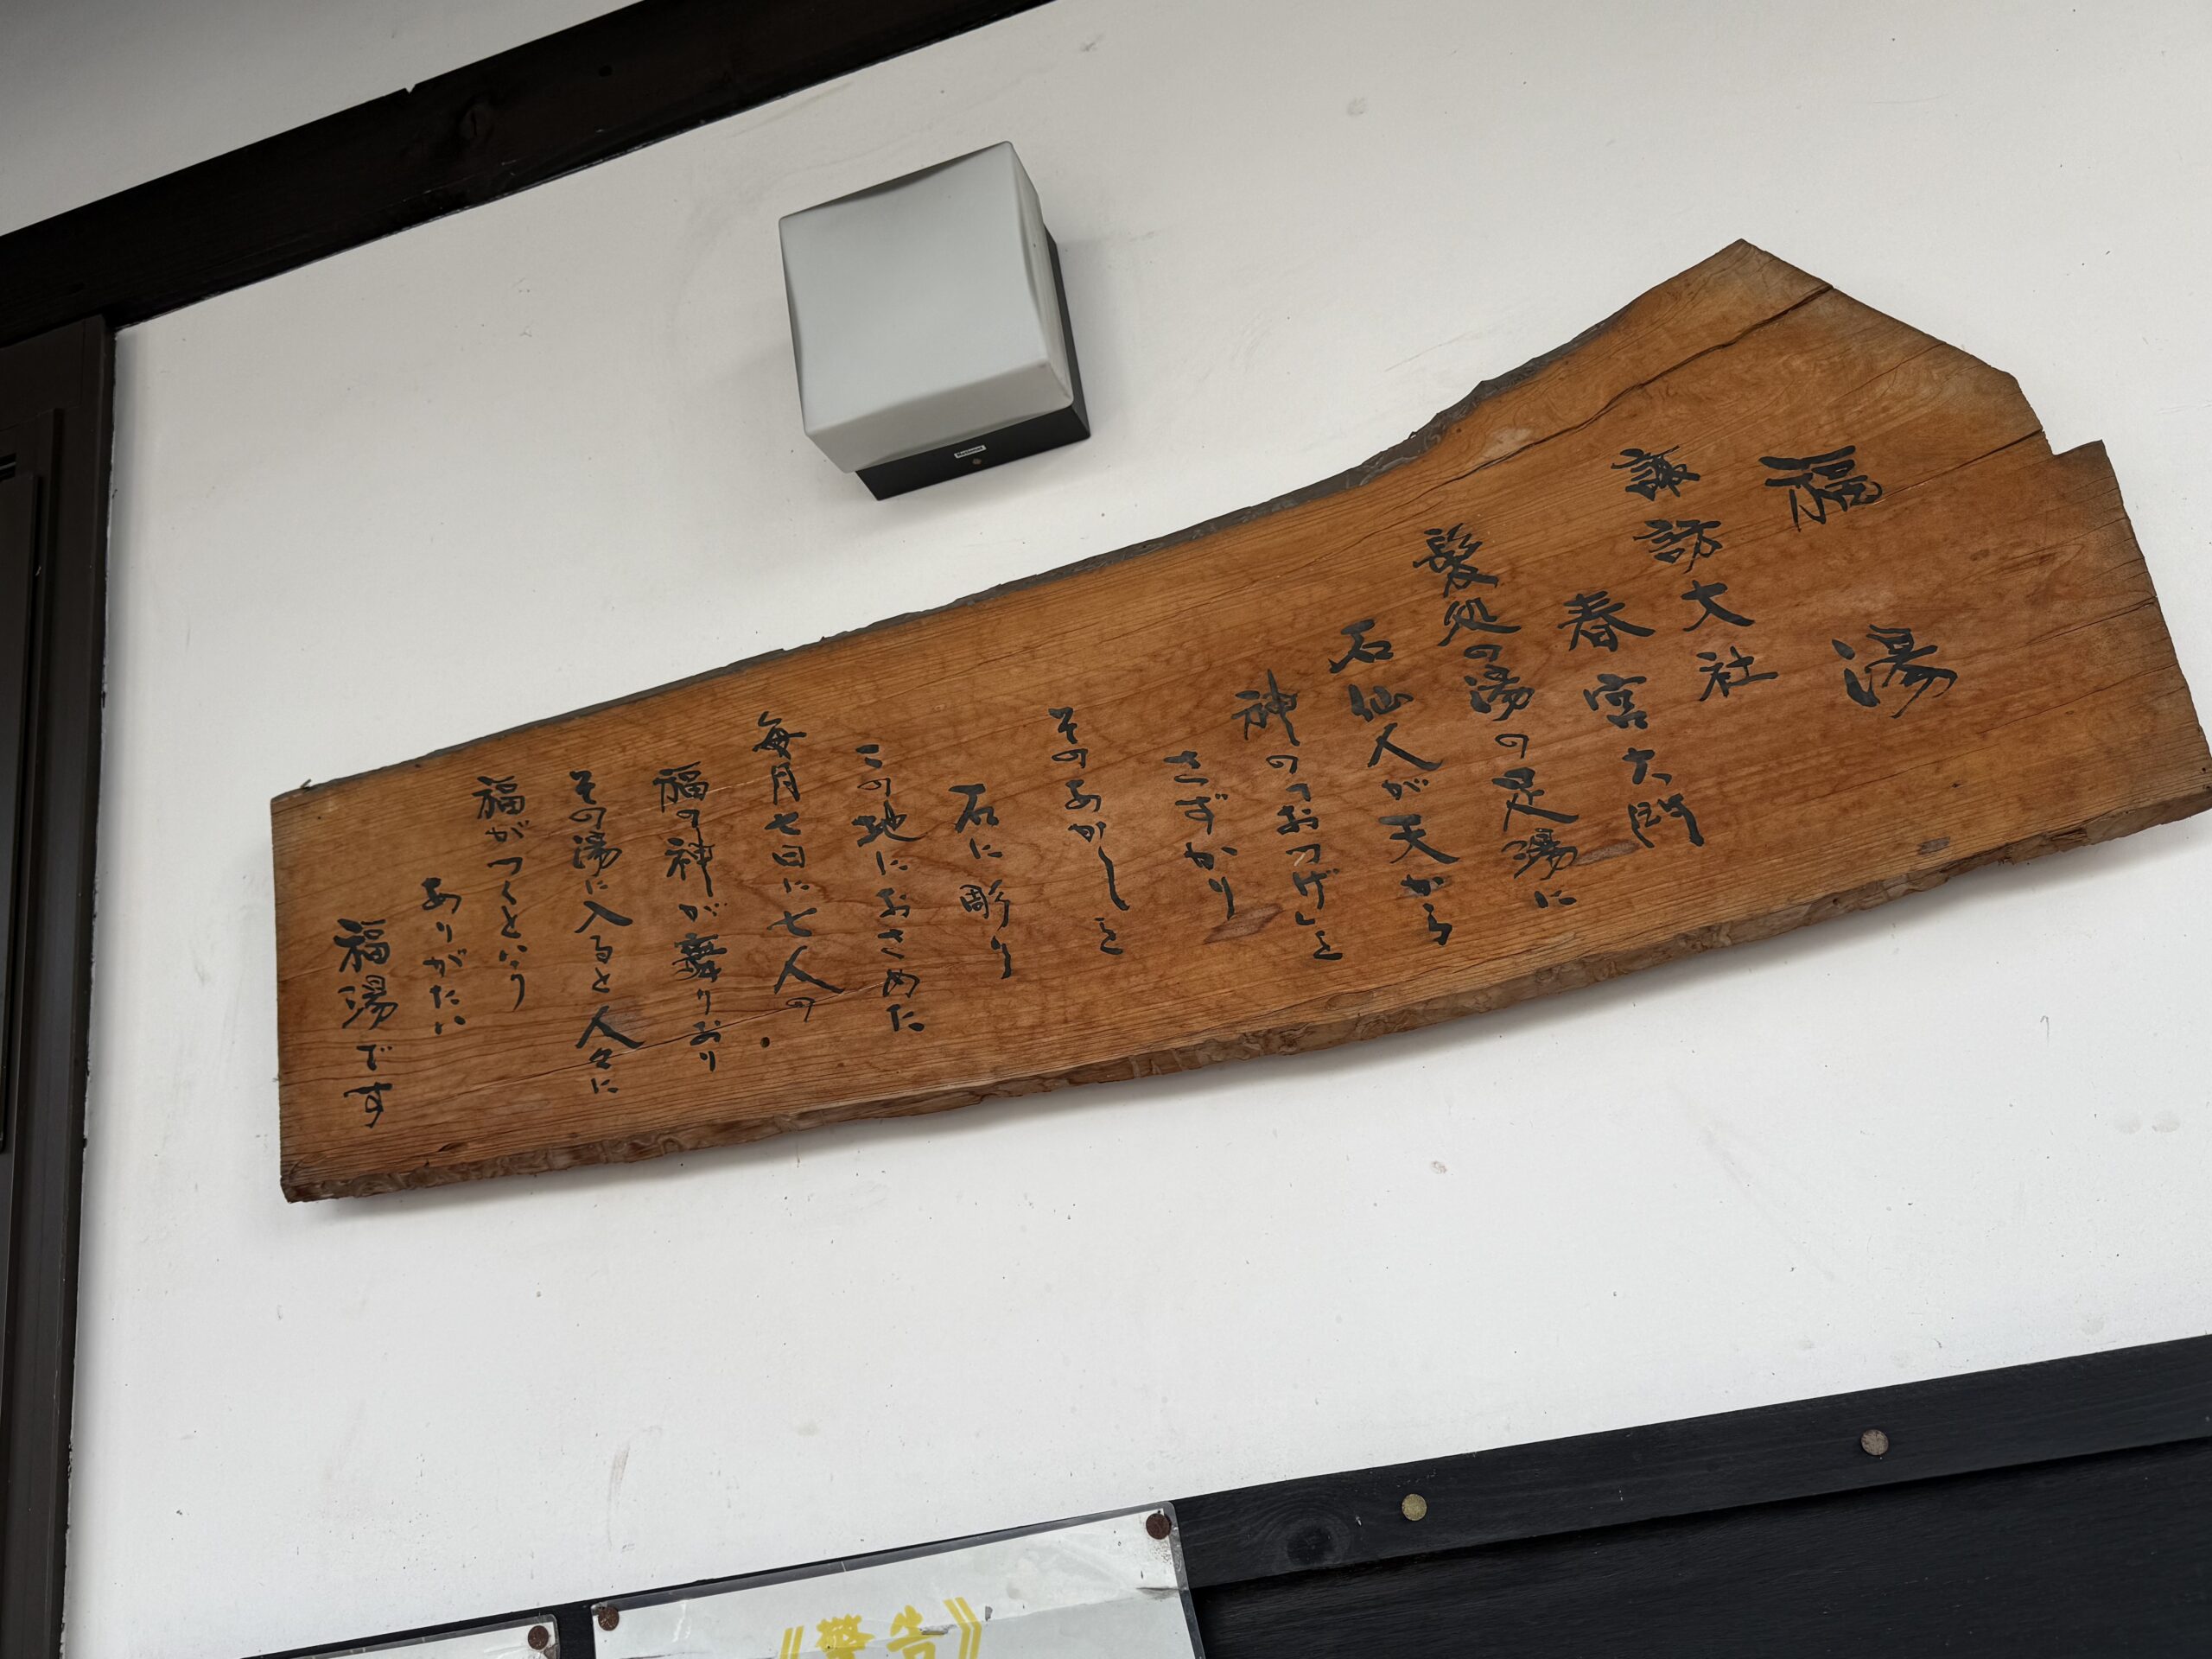 福湯
諏訪大社
春宮大門
髪処の湯の足湯に
石仙人が天から
神の「おつげ」を
さずかり
そのあかしを
石に彫り
この地におさめた
毎月七日に七人の
福の神が舞りおり
その湯に入ると人々に
福がつくという
ありがたい
福湯です
National
《警告》